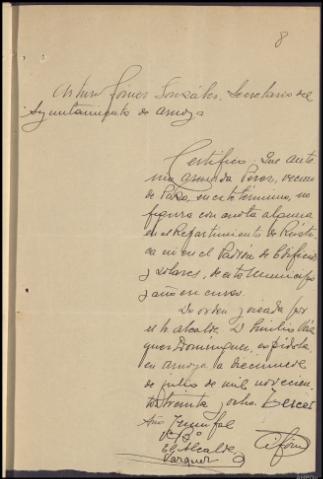 8
Arturo Gómez González, Secretario del
Ayuntamiento de Arnoya
Certifico: Que Anto
nio Armada Perez, vecino
de Paxa, en este término, no
figura con cuota alguna
en el Repartimiento de Rústi
ca ni en el Padrón de Edificios
y Solares, de este Municipio
y año en curso.
De orden y visada por
el Alcalde, D. Emilio Váz
quez Domínguez, expídola
en Arnoya a diecinueve
de julio de mil novecien
tos treinta y ocho. Tercer
Año Triunfal
Vº Bº
El Alcalde
Vazquez